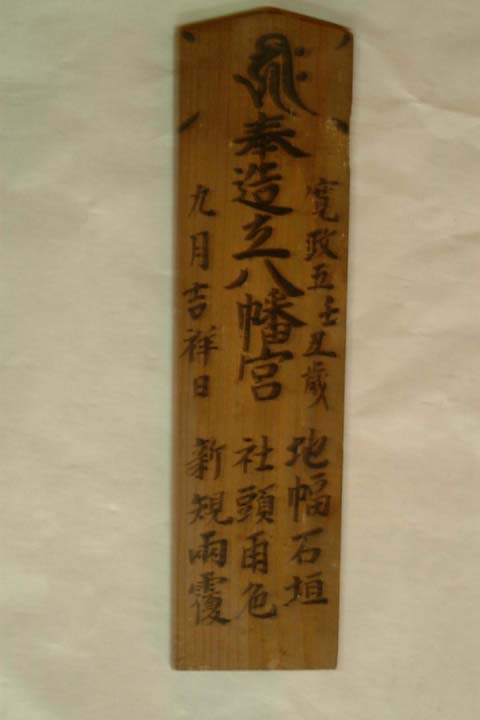 寛政五壬丑歳
奉造立八幡宮
九月吉祥日
地幅石垣
社頭再色
新規雨覆